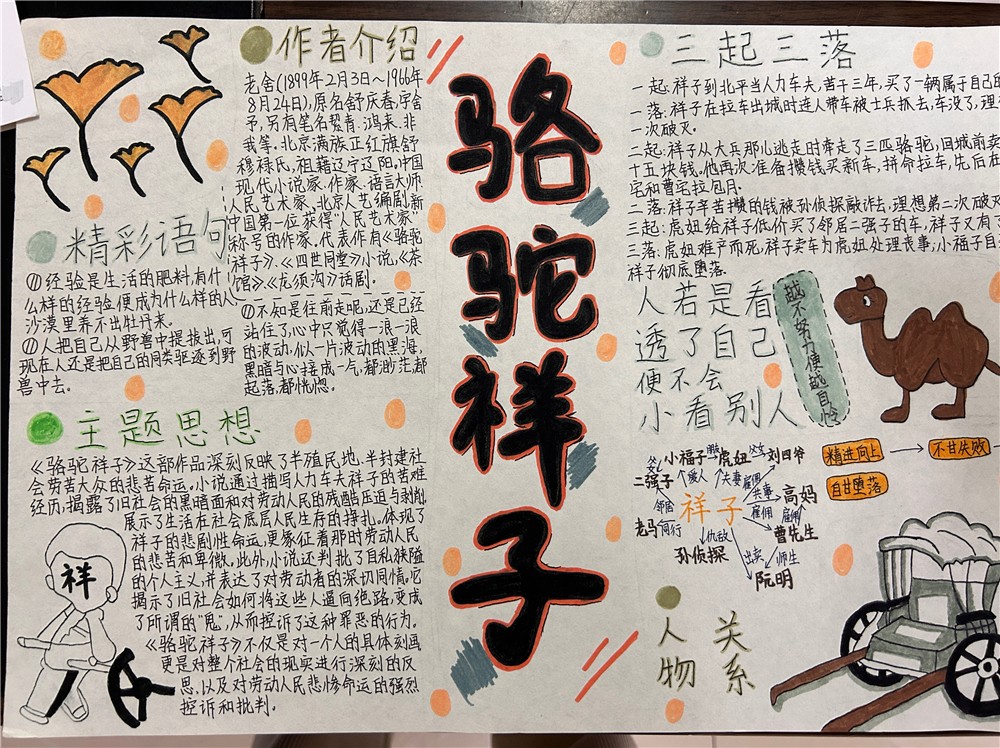 作者介绍
老舍(1899年2月3日～1966年
8月24日),原名舒庆春,字舍
予,另有笔名絜青、鸿来、非
我等。北京满族正红旗舒
穆禄氏,祖籍辽宁辽阳,中国
现代小说家、作家、语言大师、
人民艺术家、北京人艺编剧,新
中国第一位获得“人民艺术家”
称号的作家。代表作有《骆驼
祥子》、《四世同堂》小说,《茶
馆》、《龙须沟》话剧。
精彩语句
(1)经验是生活的肥料,有什
么样的经验便成为什么样的人,
沙漠里养不出牡丹来。
(1)人把自己从野兽中提拔出,可
现在人还是把自己的同类驱逐到野
兽中去。
(1)不知是往前走呢,还是已经
站住了,心中只觉得一浪一浪
的波动,似一片波动的黑海,
黑暗与心接成一气,都渺茫,都
起落,都恍惚。
主题思想
《骆驼祥子》这部作品深刻反映了半殖民地、半封建社
会劳苦大众的悲苦命运。小说通过描写人力车夫祥子的苦难
经历,揭露了旧社会的黑暗面和对劳动人民的残酷压迫与剥削,
展示了生活在社会底层人民生存的挣扎。体现了
祥子的悲剧性命运,更象征着那时劳动人民
的悲苦和卑微。此外,小说还判批了自私狭隘
的个人主义,并表达了对劳动者的深切同情,它
揭示了旧社会如何将这些人逼向绝路,变成
了所谓的“鬼”,从而控诉了这种罪恶的行为。
《骆驼祥子》不仅是对一个人的具体刻画
更是对整个社会的现实进行深刻的反
思,以及对劳动人民悲惨命运的强烈
控诉和批判。
祥
骆
驼
祥
子
三起三落
一起:祥子到北平当人力车夫,苦干三年,买了一辆属于自己
一落:祥子在拉车出城时连人带车被士兵抓去,车没了,理
一次破灭。
二起:祥子从大兵那儿逃走时牵走了三匹骆驼,回城前卖
十五块钱。他再次准备攒钱买新车,拼命拉车,先后在
宅和曹宅拉包月。
二落:祥子辛苦攒的钱被孙侦探敲诈去,理想第二次破灭
三起:虎妞给祥子低价买了邻居二强子的车,祥子又有了
三落:虎妞难产而死,祥子卖车为虎妞处理丧事;小福子自
祥子彻底堕落。
人若是看
透了自己
便不会
小看别人
越不努力便越自怜
精进向上
不甘失败
自甘堕落
小福子
虎妞
父女
刘四爷
二强子
父女
爱人
夫妻
雇佣
共事
高妈
邻居
祥子
雇佣
雇佣
老马
同行
曹先生
仇敌
孙侦探
出卖
师生
阮明
人物
关系